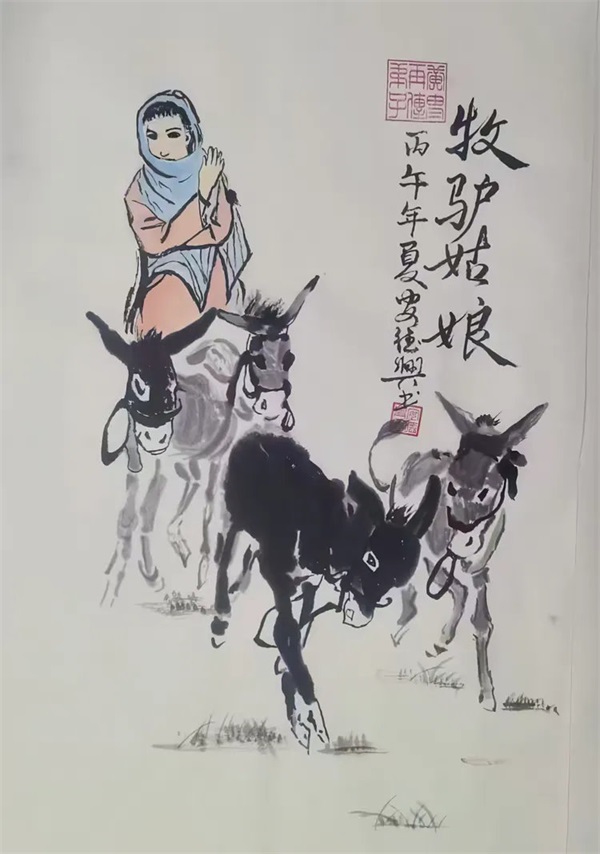 黄胄再傳弟子
牧驴姑娘
丙午年夏德興